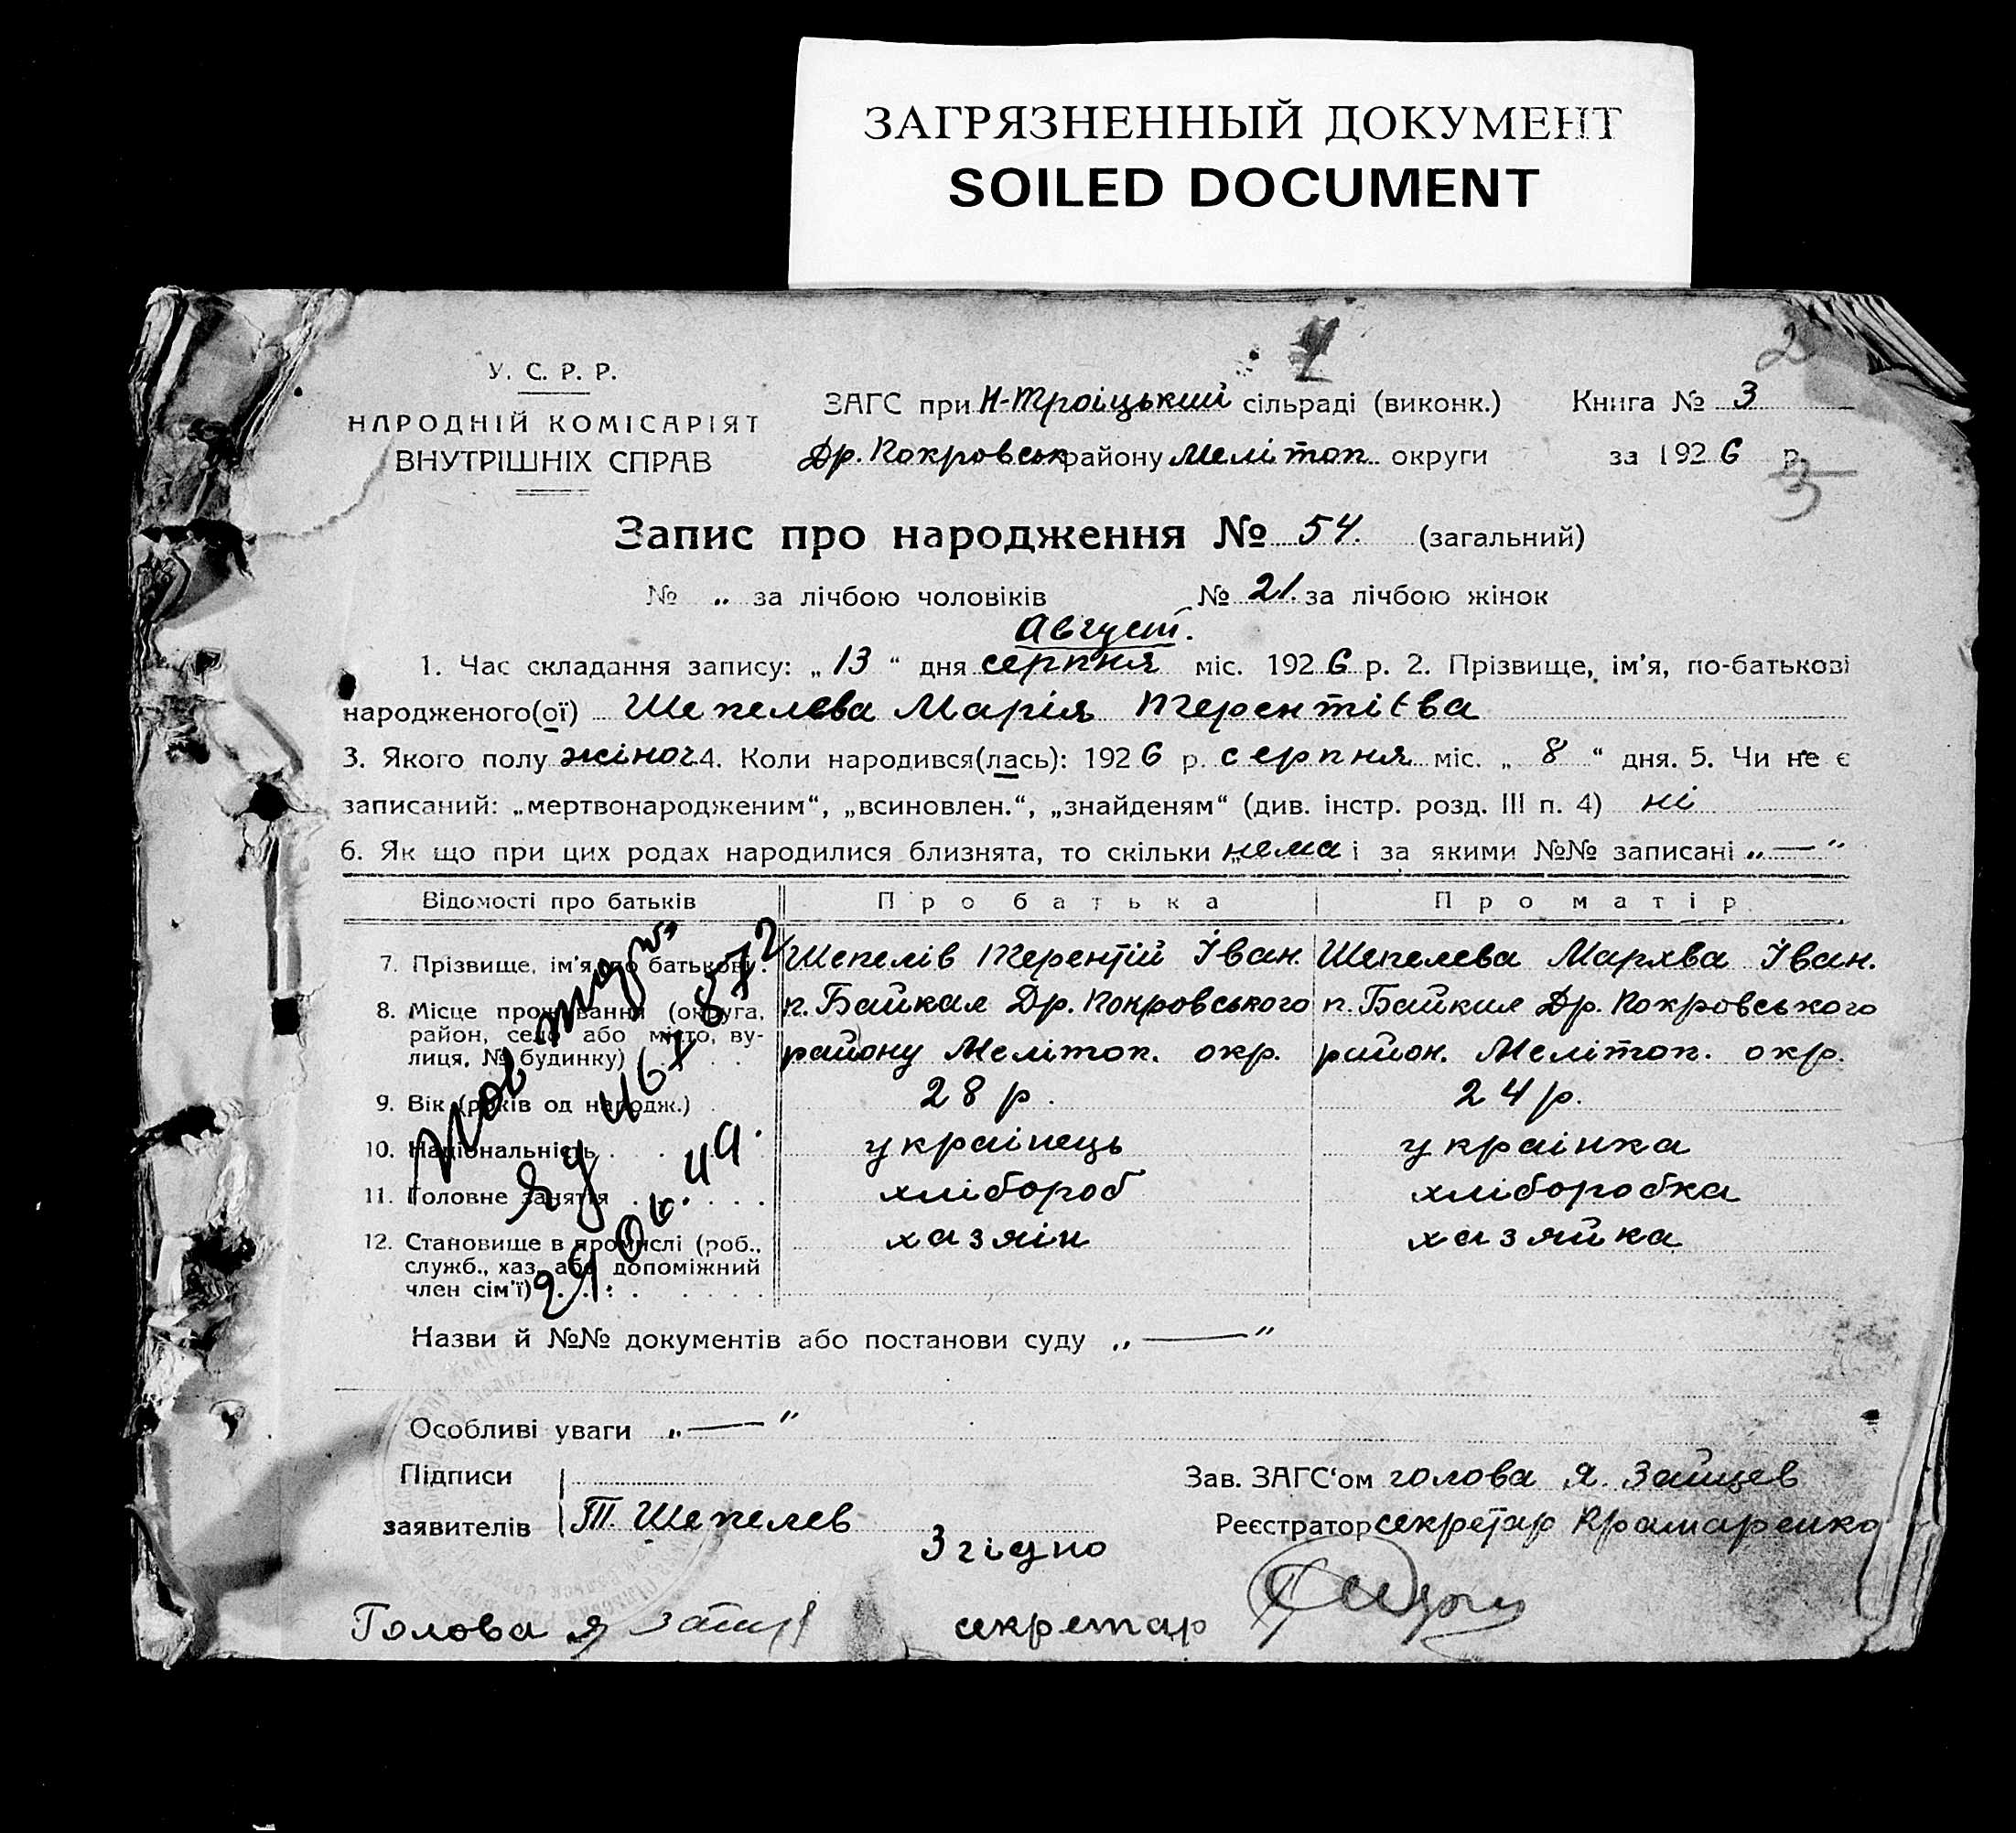 ЗАГРЯЗНЕННЫЙ ДОКУМЕНТ
SOILED DOCUMENT
2
У. С. Р. Р.
НАРОДНІЙ КОМІСАРІЯТ
ВНУТРІШНІХ СПРАВ
ЗАГС при Н-Троіцький сільраді (виконк.) Книга № 3
Др. Покровськ району Мелітоп. округи за 1926 р.
3
Запис про народження № 54. (загальний)
№ „ за лічбою чоловіків № 21. за лічбою жінок
Август.
1. Час складання запису: „13“ дня серпня міс. 1926 р. 2. Прізвище, ім'я, по-батькові
народженого(ої) Шепелєва Марія Терентієва
3. Якого полу жіноч. 4. Коли народився(лась): 1926 р. серпня міс. „8“ дня. 5. Чи не є
записаний: „мертвонародженим“, „всиновлен.“, „знайденям“ (див. інстр. розд. III п. 4) ні
6. Як що при цих родах народилися близнята, то скільки нема і за якими №№ записані „—“
Відомості про батьків Про батька Про матір
7. Прізвище, ім'я, по батькові. Шепелів Терентій Іван. Шепелева Мархва Іван.
8. Місце проживання (округа, район, село або місто, вулиця, № будинку) п. Байкал Др. Покровського п. Байкал Др. Покровського
району Мелітоп. окр. район. Мелітоп. окр.
9. Вік (років од народж.) 28 р. 24 р.
10. Національність українець українка
11. Головне заняття хлібороб хліборобка
12. Становище в промислі (роб., служб., хаз. або допоміжний член сім'ї) хазяін хазяйка
Назви й №№ документів або постанови суду „—“
Особливі уваги „—“
Підписи
заявителів Т. Шепелев
Зав. ЗАГС‘ом голова Я. Зайцев
Реєстратор секретар Крамаренко
Згідно
Голова Я секретар